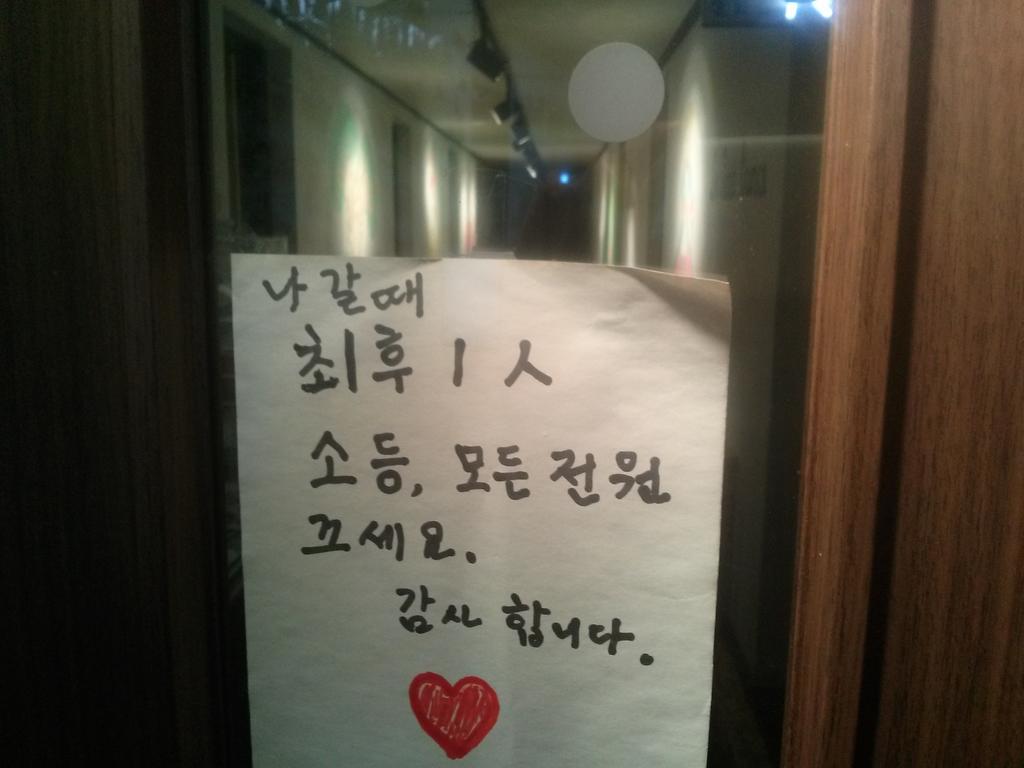 나갈때
최후 1 人
소등, 모든 전원
끄세요.
감사 합니다.